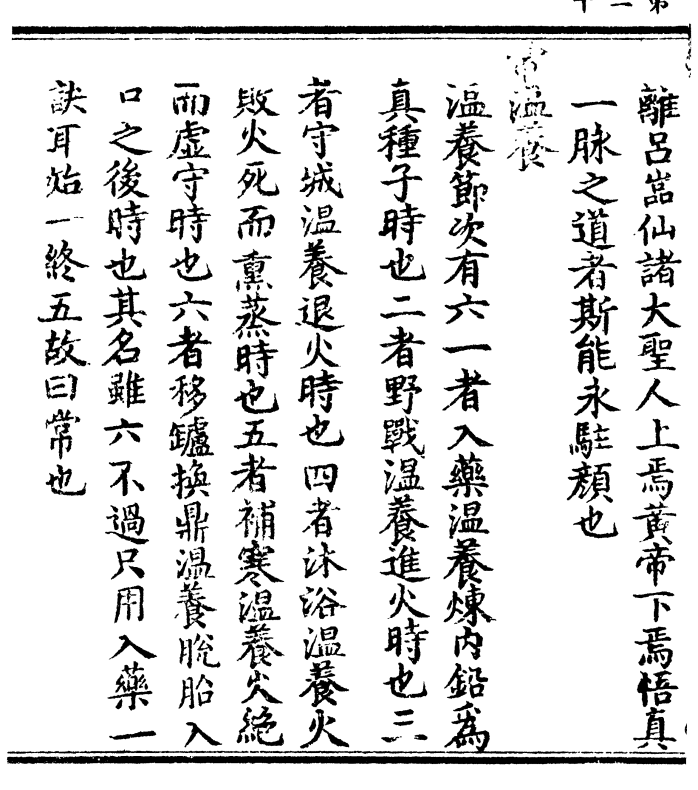 離呂嵓仙諸大聖人上焉黄帝下焉悟真
一脉之道者斯能永駐顔也
常温養
温養節次有六一者入藥温養煉内鉛爲
真種子時也二者野戰温養進火時也三
者守城温養退火時也四者沐浴温養火
敗火死而熏蒸時也五者補寒温養火絶
而虚守時也六者移鑪換鼎温養脱胎入
口之後時也其名雖六不過只用入藥一
訣耳始一終五故曰常也